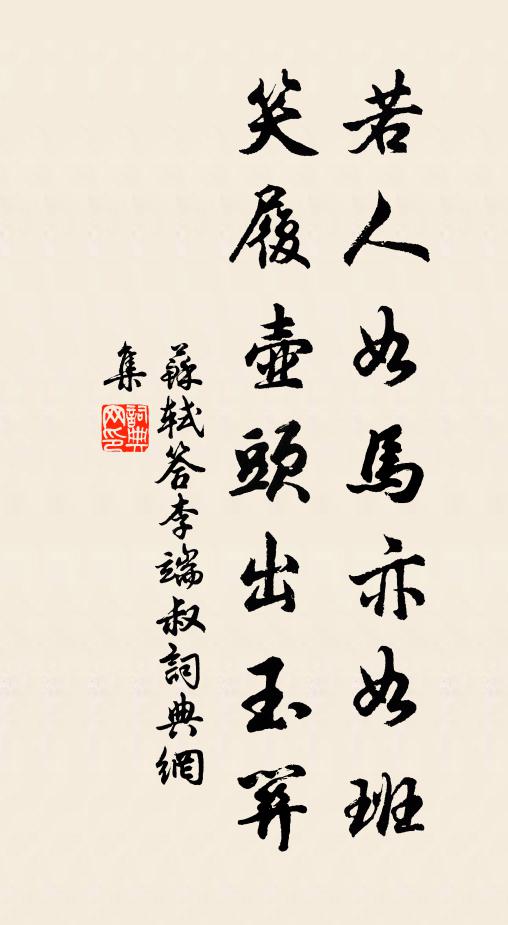 若人如馬亦如班
笑履壺頭出玉關
蘇軾答李端叔詞典網
集
詞典
网印